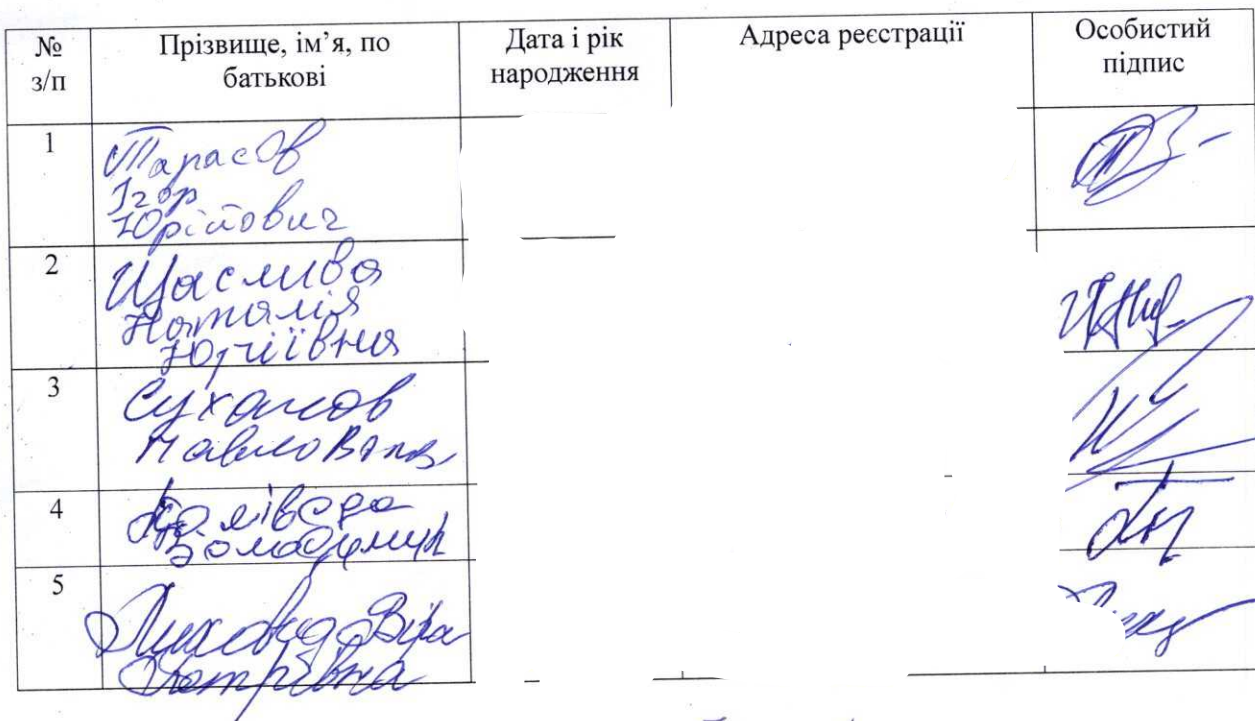 № з/п Прізвище, ім’я, по батькові Дата і рік народження Адреса реєстрації Особистий підпис
1 Тарасов
Ігор
Юрійович
2 Щаслива
Наталія
Юріївна
3 Суханов
Павло
4
Володимир
5 Лиховид Віра
Петрівна